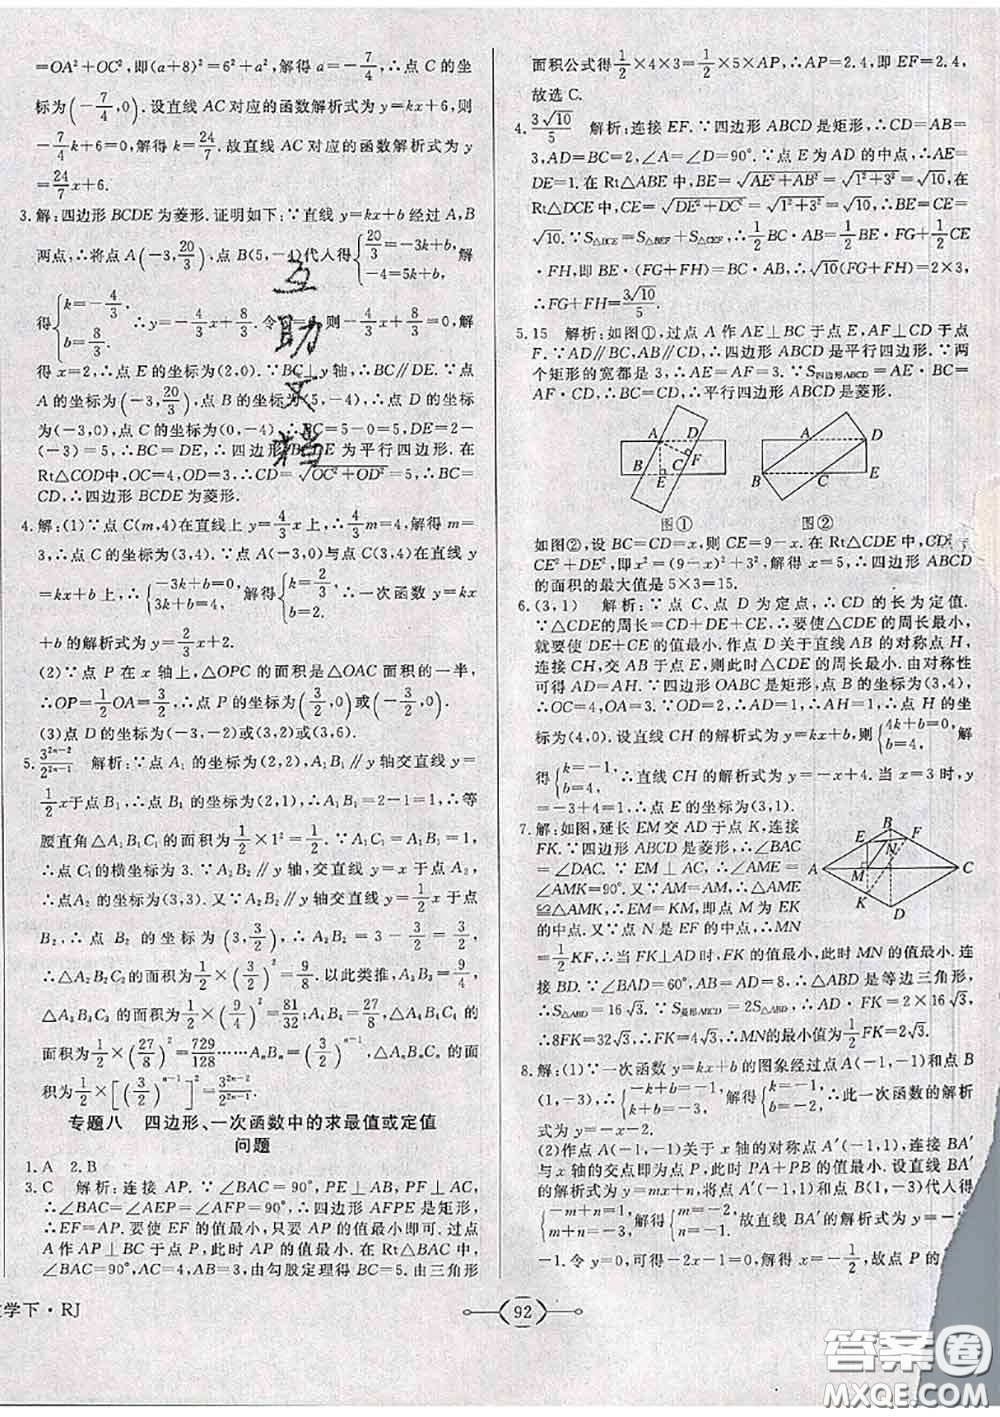 =OA²+OC²,即(a+8)²=6²+a²,解得a=-7/4,∴点C的坐
标为(-7/4,0).设直线AC对应的函数解析式为y=kx+6,则
-7/4k+6=0,解得k=24/7.故直线AC对应的函数解析式为y
=24/7x+6.
3.解:四边形BCDE为菱形.证明如下:∵直线y=kx+b经过A,B
两点,∴将点A(-3,20/3),点B(5,-4)代入得{20/3=-3k+b, -4=5k+b,解
得{k=-4/3, b=8/3.∴y=-4/3x+8/3.令y=0,则-4/3x+8/3=0,解
得x=2,∴点E的坐标为(2,0).∵BC⊥y轴,∴BC∥DE.∵点
A的坐标为(-3,20/3),点B的坐标为(5,-4),∴点D的坐标为
(-3,0),点C的坐标为(0,-4).∴BC=5-0=5,DE=2-
(-3)=5,∴BC=DE,∴四边形BCDE为平行四边形.在
Rt△COD中,OC=4,OD=3,∴CD=√(OC²+OD²)=5,∴BC
=CD.∴四边形BCDE为菱形.
4.解:(1)∵点C(m,4)在直线上y=4/3x上,∴4/3m=4,解得m=
3,∴点C的坐标为(3,4).∵点A(-3,0)与点C(3,4)在直线
y=kx+b上,∴{-3k+b=0, 3k+b=4,解得{k=2/3, b=2.∴一次函数y=kx
+b的解析式为y=2/3x+2.
(2)∵点P在x轴上,△OPC的面积是△OAC面积的一半,
∴OP=1/2OA=3/2,∴点P的坐标为(3/2,0)或(-3/2,0).
(3)点D的坐标为(-3,-2)或(3,2)或(3,6).
5.3²ⁿ⁻²/2²ⁿ⁻¹ 解析:∵点A₁的坐标为(2,2),A₁B₁∥y轴交直线y=
1/2x于点B₁,∴点B₁的坐标为(2,1),∴A₁B₁=2-1=1,∴等
腰直角△A₁B₁C₁的面积为1/2×1²=1/2.∵A₁C₁=A₁B₁=1,
∴点C₁的横坐标为3.又∵A₂B₂∥y轴,交直线y=x于点A₂,
∴点A₂的坐标为(3,3).又∵A₂B₂∥y轴,交直线y=1/2x于点
B₂,∴点B₂的坐标为(3,3/2),∴A₂B₂=3-3/2=3/2,
∴△A₂B₂C₂的面积为1/2×(3/2)²=9/8.以此类推,A₃B₃=9/4,
△A₃B₃C₃的面积为1/2×(9/4)²=81/32;A₄B₄=27/8,△A₄B₄C₄的
面积为1/2×(27/8)²=729/128……AₙBₙ=(3/2)ⁿ⁻¹,△AₙBₙCₙ的面
积为1/2×[(3/2)ⁿ⁻¹]²=3²ⁿ⁻²/2²ⁿ⁻¹.
专题八 四边形、一次函数中的求最值或定值
问题
1.A 2.B
3.C 解析:连接AP.∵∠BAC=90°,PE⊥AB,PF⊥AC,
∴∠BAC=∠AEP=∠AFP=90°,∴四边形AFPE是矩形,
∴EF=AP.要使EF的值最小,只要AP的值最小即可.过点
A作AP⊥BC于点P,此时AP的值最小.在Rt△BAC中,
∠BAC=90°,AC=4,AB=3,由勾股定理得BC=5.由三角形
面积公式得1/2×4×3=1/2×5×AP,∴AP=2.4,即EF=2.4,
故选C.
4.3√10/5 解析:连接EF.∵四边形ABCD是矩形,∴CD=AB=
3,AD=BC=2,∠A=∠D=90°.∵点E为AD的中点,∴AE=
DE=1.在Rt△ABE中,BE=√(AE²+AB²)=√(1²+3²)=√10,在
Rt△DCE中,CE=√(DE²+DC²)=√(1²+3²)=√10,∴BE=CE=
√10.∵S△BCE=S△BEF+S△CEF,∴1/2BC·AB=1/2BE·FG+1/2CE
·FH,即BE·(FG+FH)=BC·AB,∴√10(FG+FH)=2×3,
∴FG+FH=3√10/5.
5.15 解析:如图①,过点A作AE⊥BC于点E,AF⊥CD于点
F.∵AD∥BC,AB∥CD,∴四边形ABCD是平行四边形.∵两
个矩形的宽都是3,∴AE=AF=3.∵S四边形ABCD=AE·BC=
AF·CD,∴BC=CD,∴平行四边形ABCD是菱形.
A D B C E F
A D B C E
图① 图②
如图②,设BC=CD=x,则CE=9-x.在Rt△CDE中,CD²=
CE²+DE²,即x²=(9-x)²+3²,解得x=5,∴四边形ABCD
的面积的最大值是5×3=15.
6.(3,1) 解析:∵点C、点D为定点,∴CD的长为定值.
∵△CDE的周长=CD+DE+CE,∴要使△CDE的周长最小,
就要使DE+CE的值最小.作点D关于直线AB的对称点H,
连接CH,交AB于点E,则此时△CDE的周长最小.由对称性
可得AD=AH.∵四边形OABC是矩形,点B的坐标为(3,4),
∴OC=4,OA=3.∵D为OA的中点,∴AD=1,∴AH=1,∴点H的坐
标为(4,0).设直线CH的解析式为y=kx+b,则{4k+b=0, b=4,解
得{k=-1, b=4.∴直线CH的解析式为y=-x+4.当x=3时,y=
-3+4=1,∴点E的坐标为(3,1).
7.解:如图,延长EM交AD于点K,连接
FK.∵四边形ABCD是菱形,∴∠BAC
=∠DAC.∵EM⊥AC,∴∠AME=
∠AMK=90°.又∵AM=AM,∴△AME
≌△AMK,∴EM=KM,即点M为EK
的中点.又∵点N是EF的中点,∴MN
A B C D E F M N K
=1/2KF,∴当FK⊥AD时,FK的值最小,此时MN的值最小.连
接BD.∵∠BAD=60°,AB=AD=8,∴△ABD是等边三角形,
∴S△ABD=16√3.∵S菱形ABCD=2S△ABD,∴AD·FK=2×16√3,
∴8FK=32√3,∴FK=4√3,∴MN的最小值为1/2FK=2√3.
8.解:(1)∵一次函数y=kx+b的图象经过点A(-1,-1)和点B
(1,-3),∴{-k+b=-1, k+b=-3,解得{k=-1, b=-2,∴一次函数的解析
式为y=-x-2.
(2)作点A(-1,-1)关于x轴的对称点A′(-1,1),连接BA′
与x轴的交点即为点P,此时PA+PB的值最小.设直线BA′
的解析式为y=mx+n,将点A′(-1,1)和点B(1,-3)代入得
{-m+n=1, m+n=-3,解得{m=-2, n=-1,故直线BA′的解析式为y=-2x
-1.令y=0,可得-2x-1=0,解得x=-1/2,故点P的
学下·RJ
92
互助文档
答案圈
MXQE.COM